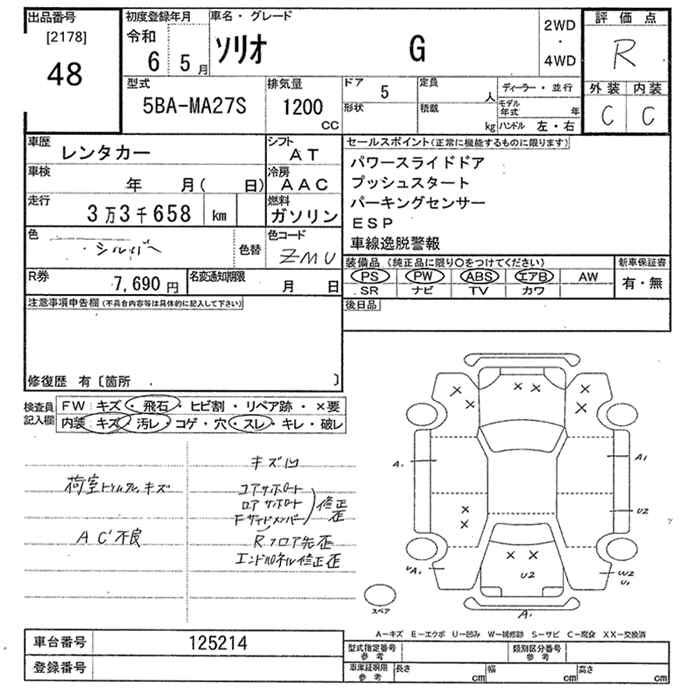 出品番号
[2178]
48
初度登録年月
令和
6 5月
車名・グレード
ソリオ G
2WD
・
4WD
評価点
R
外装 内装
C C
型式
5BA-MA27S
排気量
1200
CC
ドア 5
形状
定員 人
積載 kg
ディーラー・並行
モデル年式 年
ハンドル 左・右
車歴
レンタカー
シフト
AT
車検
年 月( 日)
冷房
AAC
走行
3万3千658 km
燃料
ガソリン
色
シルバー
色替
色コード
ZMU
R券
7,690円
名変通知期限
月 日
セールスポイント(正常に機能するものに限ります)
パワースライドドア
プッシュスタート
パーキングセンサー
ESP
車線逸脱警報
装備品(純正品に限り○をつけてください)
PS PW ABS エアB AW
SR ナビ TV カワ
新車保証書
有・無
後日品
注意事項申告欄(不具合内容等は具体的に記入して下さい)
修復歴 有〔箇所 〕
検査員
記入欄
FW キズ・飛石・ヒビ割・リペア跡・×要
内装 キズ・汚レ・コゲ・穴・スレ・キレ・破レ
荷室トリム キズ
AC不良
キズ凹
コアサポート
ロアサポート
Fサイドメンバー
修正歪
Rフロア先歪
エンドパネル修正歪
A1
A1
U2
A1
U2
W2
U1
A1
スペア
A-キズ E-エクボ U-凹み W-補修跡 S-サビ C-腐食 XX-交換済
車台番号 125214
登録番号
型式指定番号
参考
類別区分番号
参考
車庫証明用
参考
長さ cm
幅 cm
高さ cm